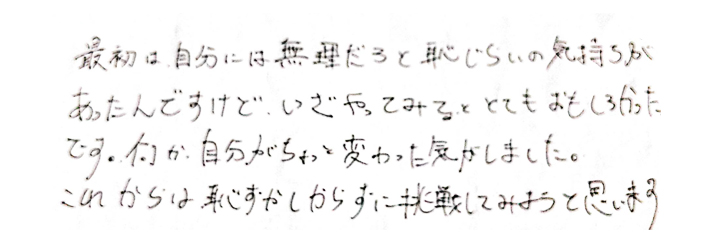 最初は、自分には無理だろと恥じらいの気持ちが
あったんですけど、いざやってみるととてもおもしろかった
です。何か、自分がちょっと変わった気がしました。
これからは恥ずかしがらずに挑戦してみようと思います